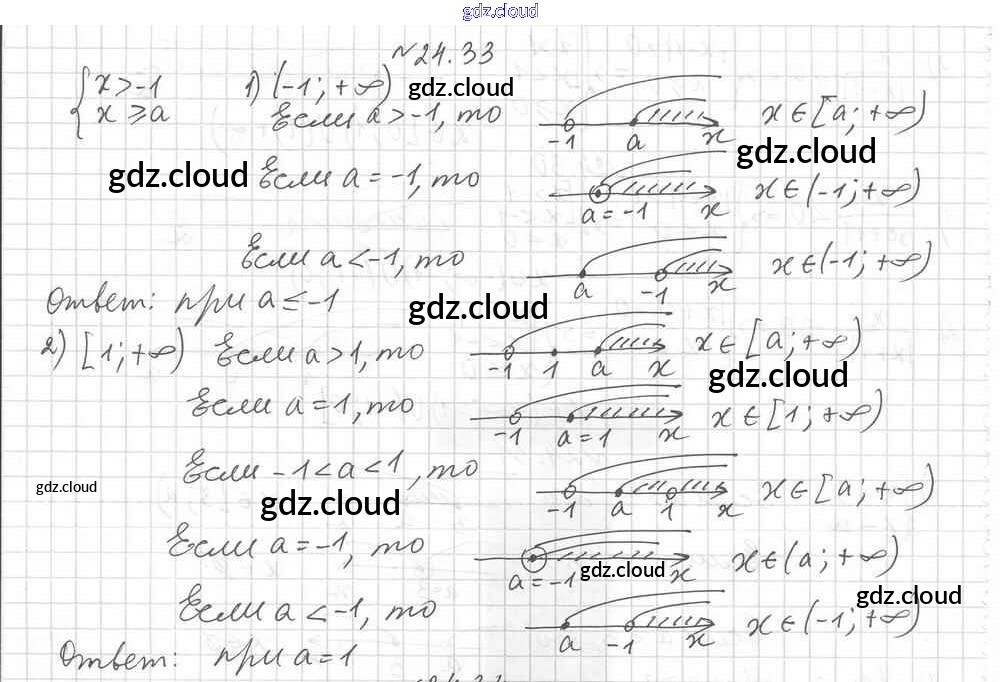 gdz.cloud
№24.33
{ x > -1
x ≥ a
1) (-1; +∞) gdz.cloud
Если a > -1, то -1 a x x ∈ [a; +∞)
gdz.cloud
gdz.cloud Если a = -1, то a = -1 x x ∈ (-1; +∞)
Если a < -1, то a -1 x x ∈ (-1; +∞)
Ответ: при a ≤ -1 gdz.cloud
2) [1; +∞) Если a > 1, то -1 1 a x x ∈ [a; +∞)
gdz.cloud
Если a = 1, то -1 a = 1 x x ∈ [1; +∞)
Если -1 < a < 1, то -1 a 1 x x ∈ [a; +∞)
gdz.cloud gdz.cloud
Если a = -1, то a = -1 x x ∈ (a; +∞)
gdz.cloud
gdz.cloud
Если a < -1, то a -1 x x ∈ (-1; +∞)
Ответ: при a = 1